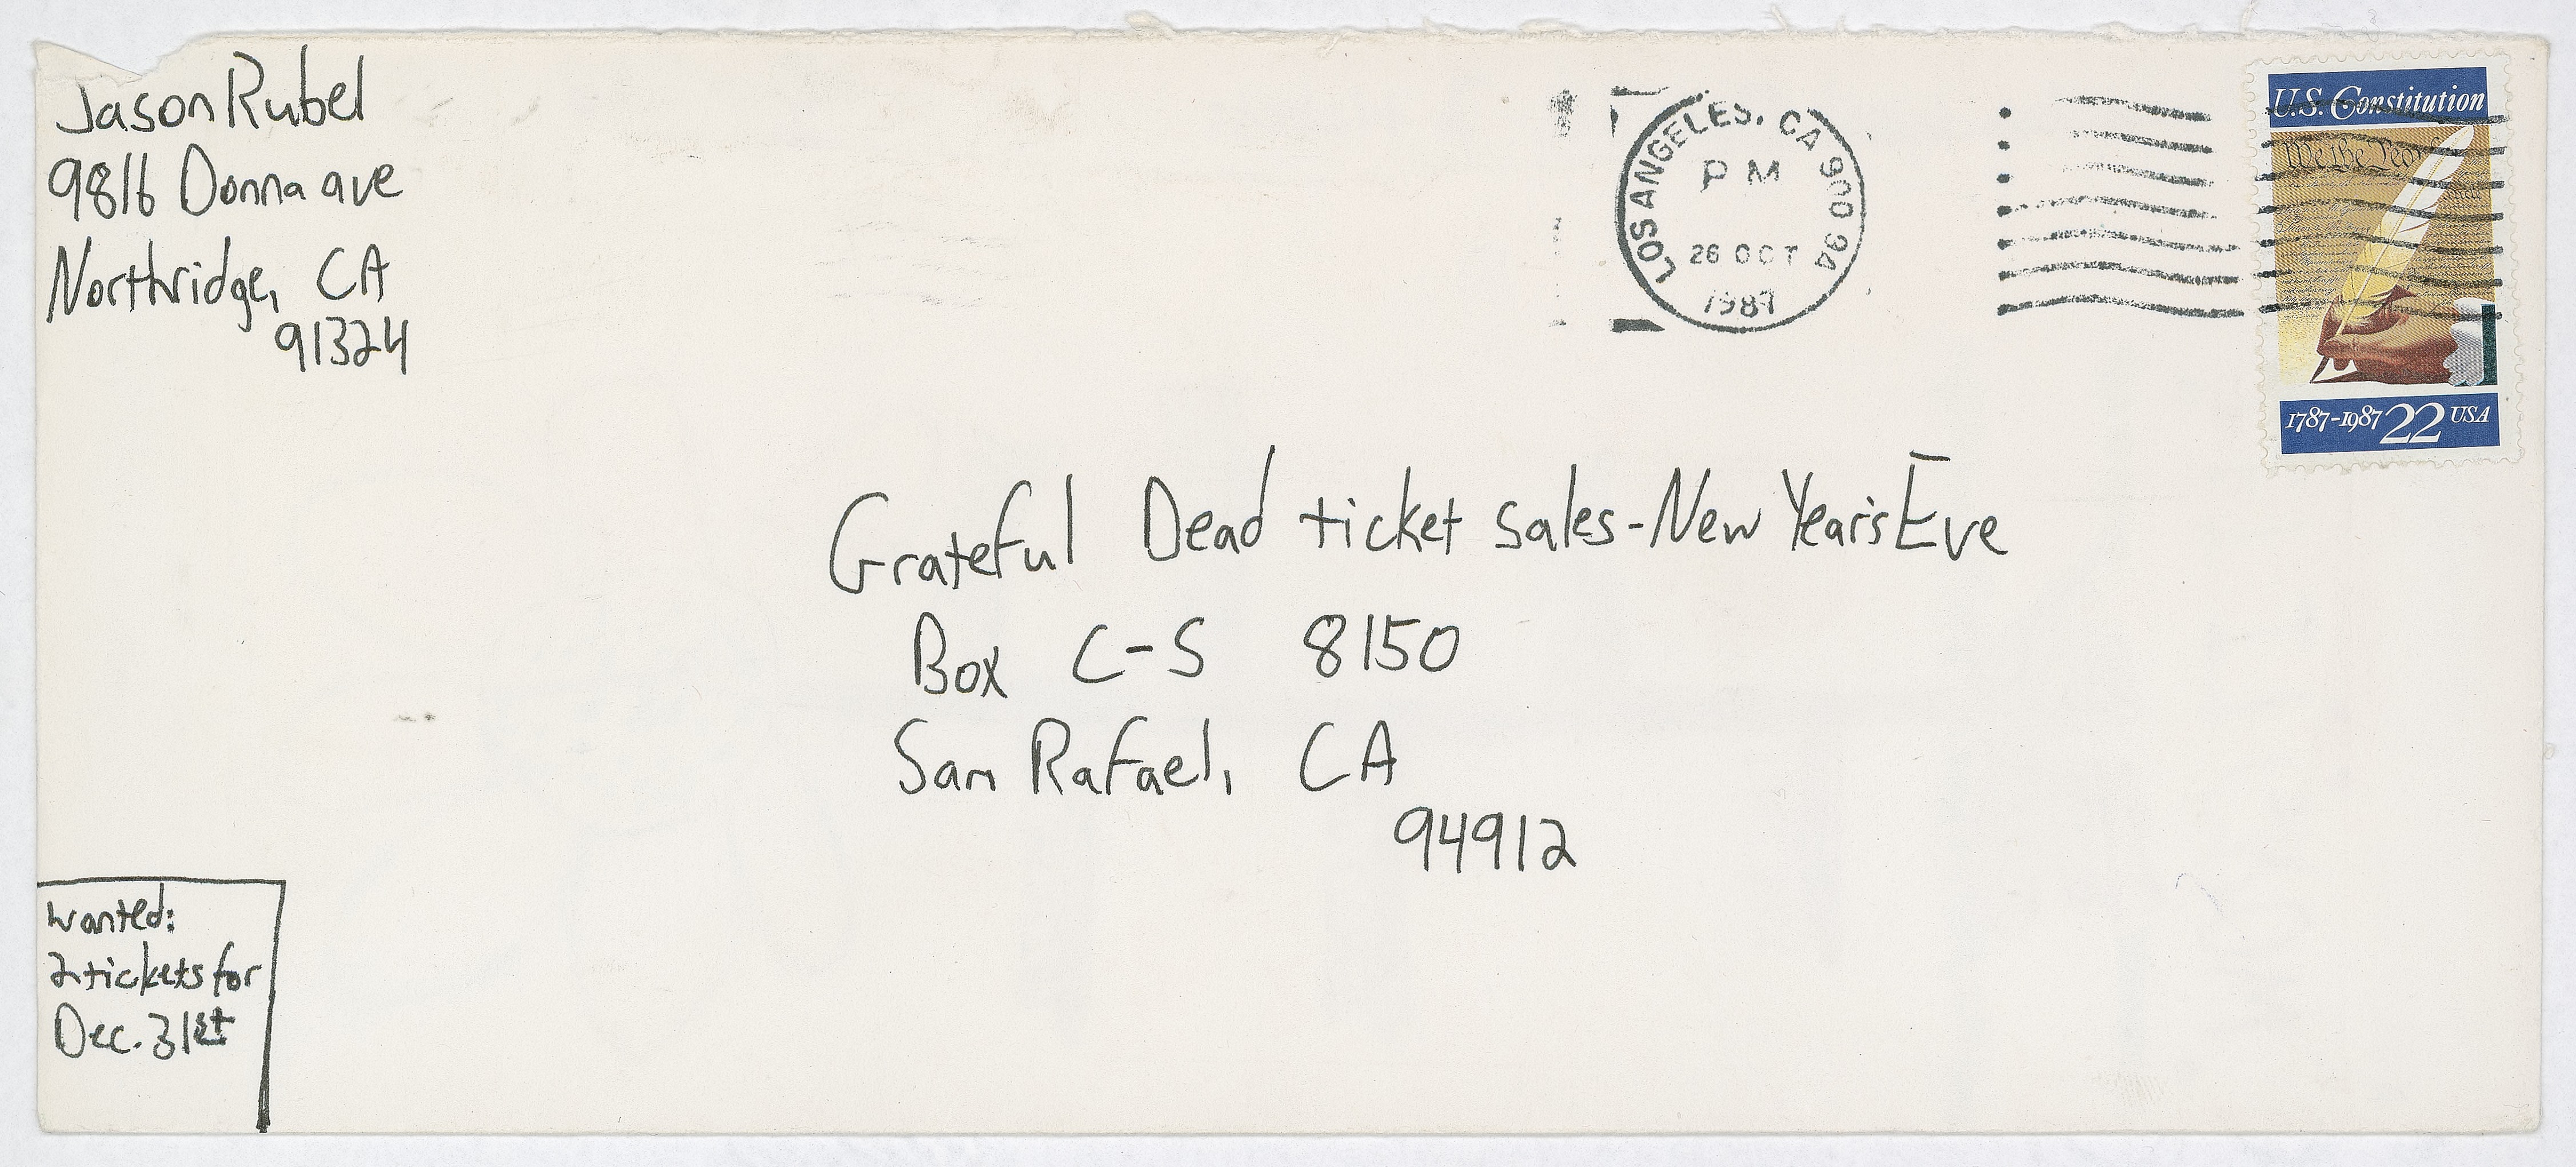 Jason Rubel
9816 Donna ave
Northridge, CA
91324
LOS ANGELES, CA 900 94
PM
26 OCT
1987
U.S. Constitution
We the Peop
1787-1987 22 USA
Grateful Dead ticket sales-New Year's Eve
Box C-S 8150
San Rafael, CA
94912
Wanted:
2 tickets for
Dec. 31st